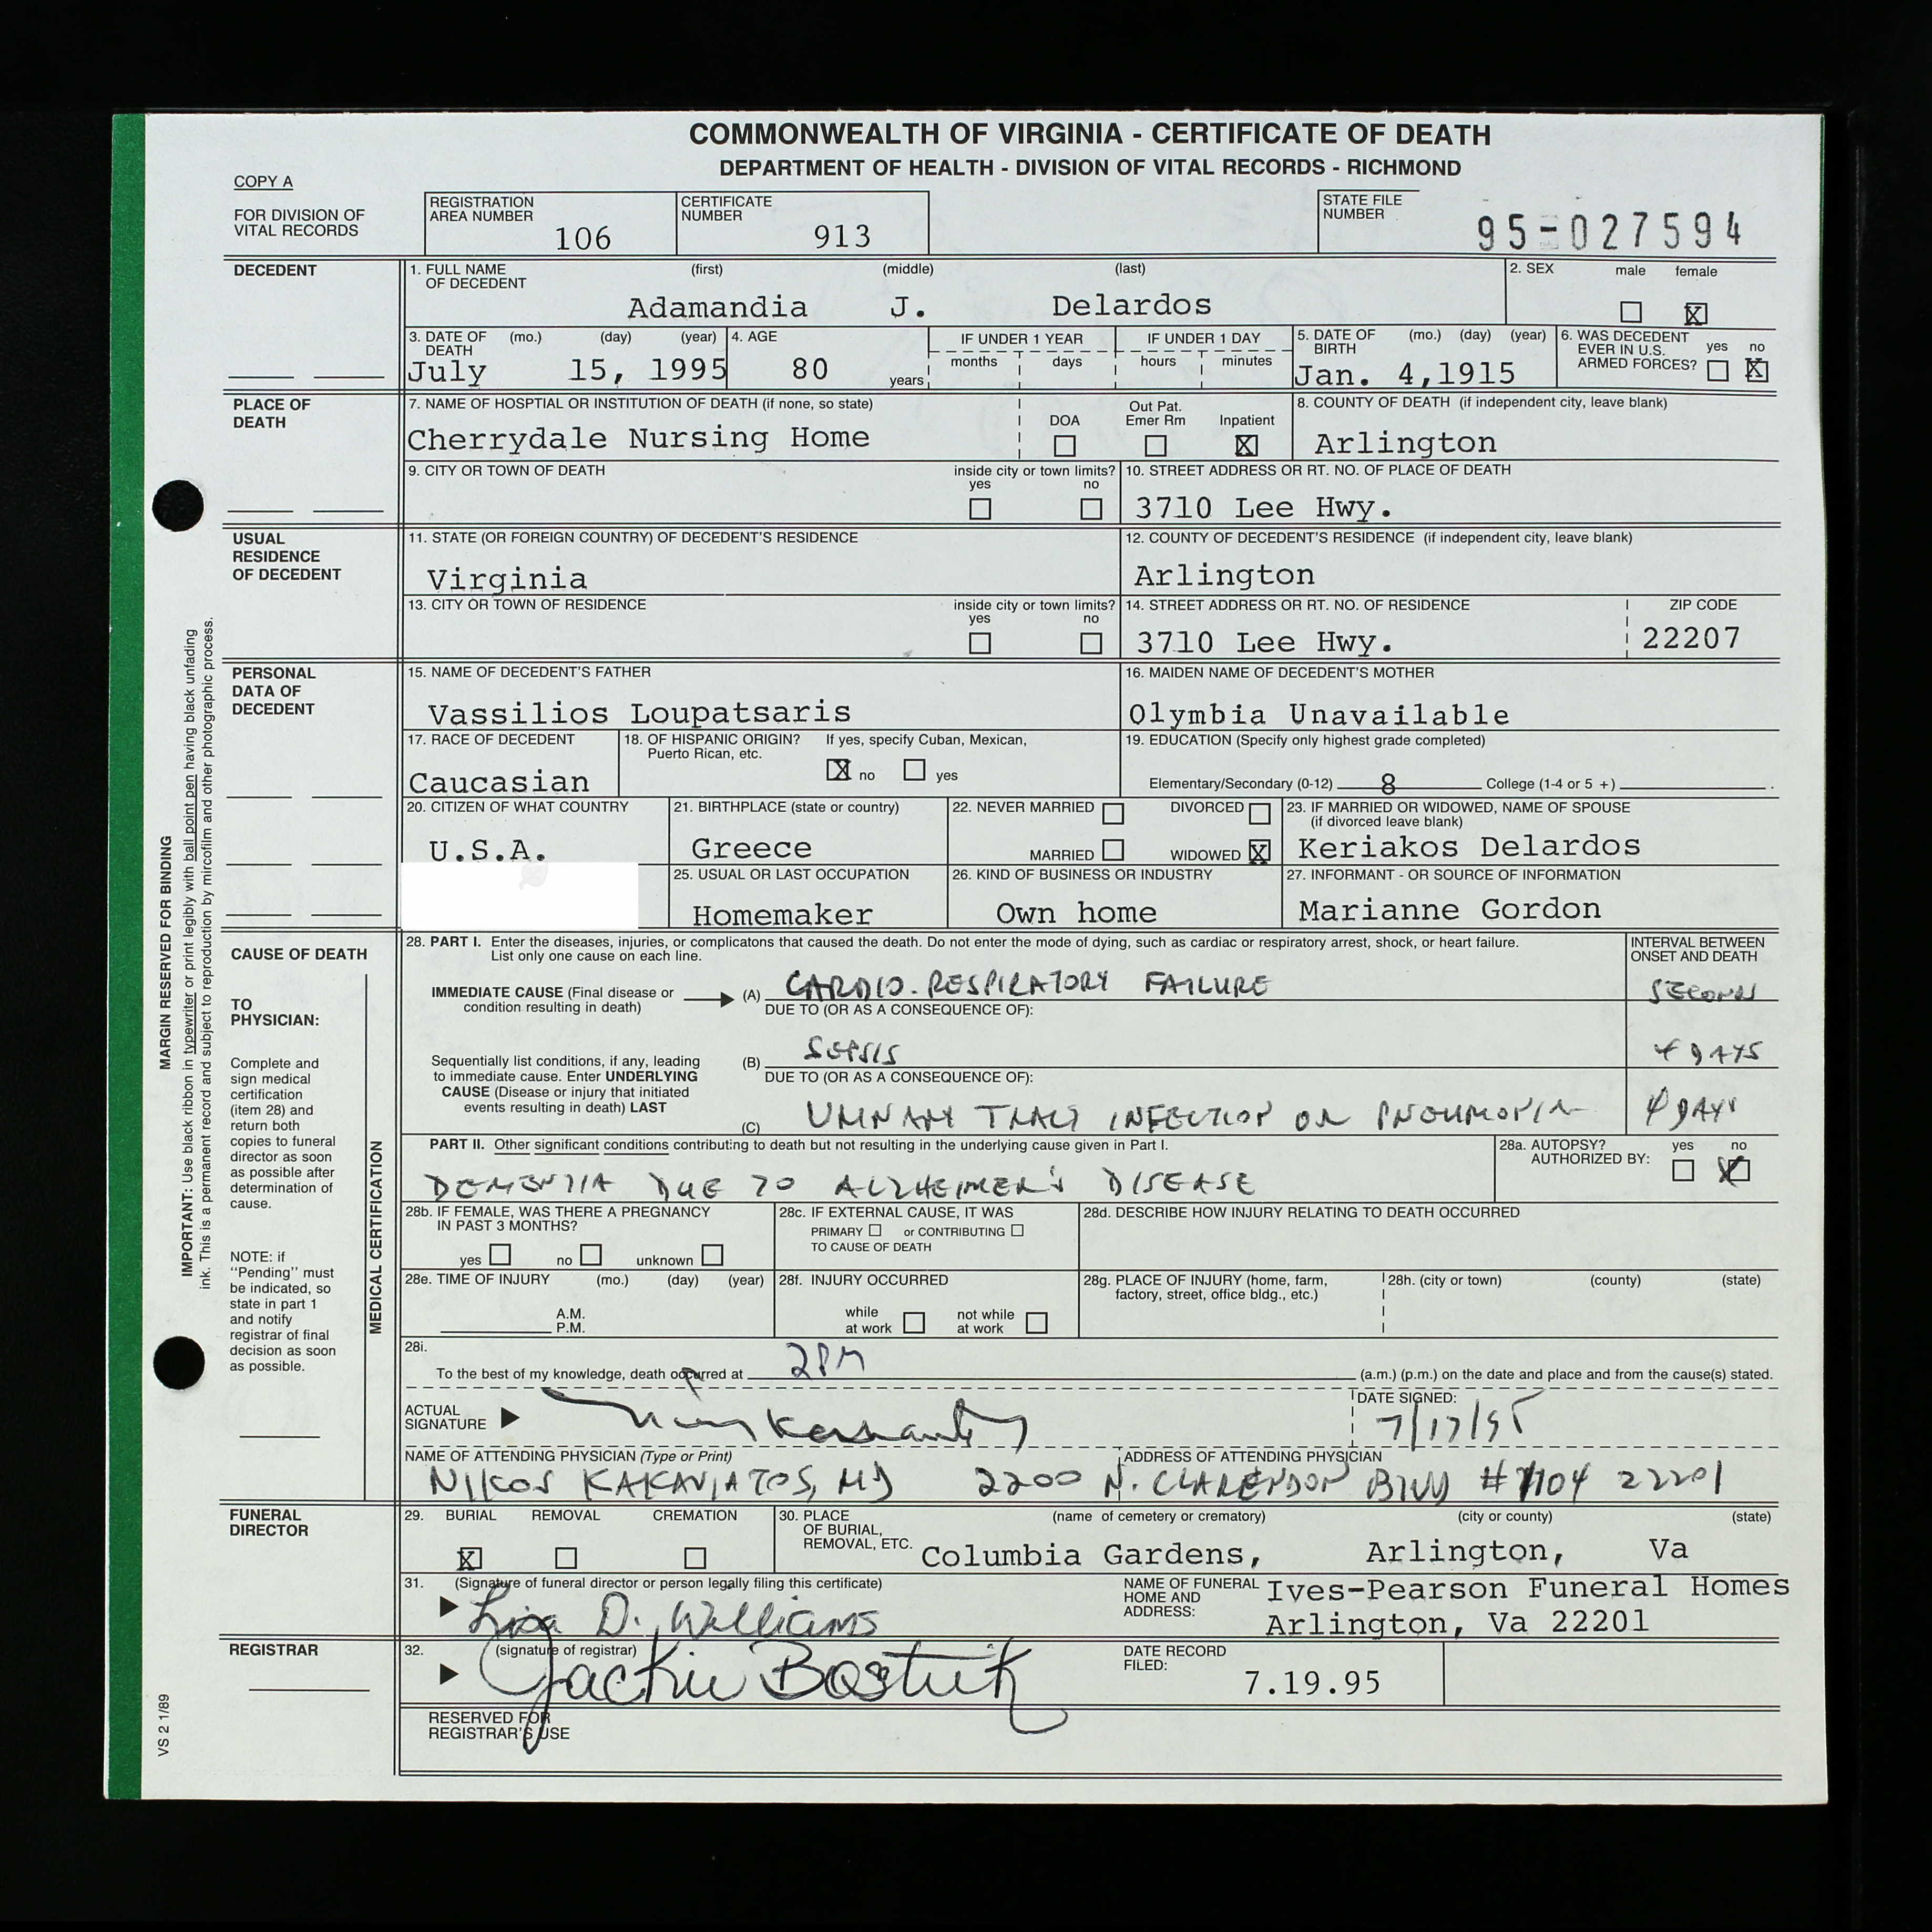 COMMONWEALTH OF VIRGINIA - CERTIFICATE OF DEATH
DEPARTMENT OF HEALTH - DIVISION OF VITAL RECORDS - RICHMOND
COPY A
FOR DIVISION OF
VITAL RECORDS
REGISTRATION
AREA NUMBER 106
CERTIFICATE
NUMBER 913
STATE FILE
NUMBER 95-027594
DECEDENT
1. FULL NAME (first) (middle) (last)
OF DECEDENT
Adamandia J. Delardos
2. SEX male female
X
3. DATE OF (mo.) (day) (year)
DEATH
July 15, 1995
4. AGE
80 years
IF UNDER 1 YEAR
months days
IF UNDER 1 DAY
hours minutes
5. DATE OF (mo.) (day) (year)
BIRTH
Jan. 4,1915
6. WAS DECEDENT
EVER IN U.S. yes no
ARMED FORCES? X
PLACE OF
DEATH
7. NAME OF HOSPTIAL OR INSTITUTION OF DEATH (if none, so state)
Cherrydale Nursing Home
DOA
Out Pat.
Emer Rm
Inpatient
X
8. COUNTY OF DEATH (if independent city, leave blank)
Arlington
9. CITY OR TOWN OF DEATH
inside city or town limits?
yes no
10. STREET ADDRESS OR RT. NO. OF PLACE OF DEATH
3710 Lee Hwy.
USUAL
RESIDENCE
OF DECEDENT
11. STATE (OR FOREIGN COUNTRY) OF DECEDENT'S RESIDENCE
Virginia
12. COUNTY OF DECEDENT'S RESIDENCE (if independent city, leave blank)
Arlington
13. CITY OR TOWN OF RESIDENCE
inside city or town limits?
yes no
14. STREET ADDRESS OR RT. NO. OF RESIDENCE
3710 Lee Hwy.
ZIP CODE
22207
PERSONAL
DATA OF
DECEDENT
15. NAME OF DECEDENT'S FATHER
Vassilios Loupatsaris
16. MAIDEN NAME OF DECEDENT'S MOTHER
Olymbia Unavailable
17. RACE OF DECEDENT
Caucasian
18. OF HISPANIC ORIGIN? If yes, specify Cuban, Mexican,
Puerto Rican, etc.
X no yes
19. EDUCATION (Specify only highest grade completed)
Elementary/Secondary (0-12) 8 College (1-4 or 5 +)
20. CITIZEN OF WHAT COUNTRY
U.S.A.
21. BIRTHPLACE (state or country)
Greece
22. NEVER MARRIED DIVORCED
MARRIED WIDOWED X
23. IF MARRIED OR WIDOWED, NAME OF SPOUSE
(if divorced leave blank)
Keriakos Delardos
25. USUAL OR LAST OCCUPATION
Homemaker
26. KIND OF BUSINESS OR INDUSTRY
Own home
27. INFORMANT - OR SOURCE OF INFORMATION
Marianne Gordon
CAUSE OF DEATH
TO
PHYSICIAN:
Complete and
sign medical
certification
(item 28) and
return both
copies to funeral
director as soon
as possible after
determination of
cause.
NOTE: if
"Pending" must
be indicated, so
state in part 1
and notify
registrar of final
decision as soon
as possible.
MEDICAL CERTIFICATION
28. PART I. Enter the diseases, injuries, or complicatons that caused the death. Do not enter the mode of dying, such as cardiac or respiratory arrest, shock, or heart failure.
List only one cause on each line.
INTERVAL BETWEEN
ONSET AND DEATH
IMMEDIATE CAUSE (Final disease or
condition resulting in death)
(A) CARDIO-RESPIRATORY FAILURE
DUE TO (OR AS A CONSEQUENCE OF):
Sequentially list conditions, if any, leading
to immediate cause. Enter UNDERLYING
CAUSE (Disease or injury that initiated
events resulting in death) LAST
(B) SEPSIS 4 DAYS
DUE TO (OR AS A CONSEQUENCE OF):
(C) URINARY TRACT INFECTION OR PNEUMONIA 4 DAYS
PART II. Other significant conditions contributing to death but not resulting in the underlying cause given in Part I.
DEMENTIA DUE TO ALZHEIMER'S DISEASE
28a. AUTOPSY? yes no
AUTHORIZED BY: X
28b. IF FEMALE, WAS THERE A PREGNANCY
IN PAST 3 MONTHS?
yes no unknown
28c. IF EXTERNAL CAUSE, IT WAS
PRIMARY or CONTRIBUTING
TO CAUSE OF DEATH
28d. DESCRIBE HOW INJURY RELATING TO DEATH OCCURRED
28e. TIME OF INJURY (mo.) (day) (year)
A.M.
P.M.
28f. INJURY OCCURRED
while not while
at work at work
28g. PLACE OF INJURY (home, farm,
factory, street, office bldg., etc.)
28h. (city or town) (county) (state)
28i.
To the best of my knowledge, death occurred at 2PM (a.m.) (p.m.) on the date and place and from the cause(s) stated.
ACTUAL
SIGNATURE
DATE SIGNED:
7/17/95
NAME OF ATTENDING PHYSICIAN (Type or Print)
NIKOS KAKAVIATOS, MD
ADDRESS OF ATTENDING PHYSICIAN
2200 N. CLARENDON BLVD #1104 22201
FUNERAL
DIRECTOR
29. BURIAL REMOVAL CREMATION
X
30. PLACE (name of cemetery or crematory) (city or county) (state)
OF BURIAL,
REMOVAL, ETC.
Columbia Gardens, Arlington, Va
31. (Signature of funeral director or person legally filing this certificate)
Lisa D. Williams
NAME OF FUNERAL
HOME AND
ADDRESS:
Ives-Pearson Funeral Homes
Arlington, Va 22201
REGISTRAR
32. (signature of registrar)
Jackie Bostick
DATE RECORD
FILED:
7.19.95
RESERVED FOR
REGISTRAR'S USE
MARGIN RESERVED FOR BINDING
IMPORTANT: Use black ribbon in typewriter or print legibly with ball point pen having black unfading
ink. This is a permanent record and subject to reproduction by mircofilm and other photographic process.
VS 2 1/89